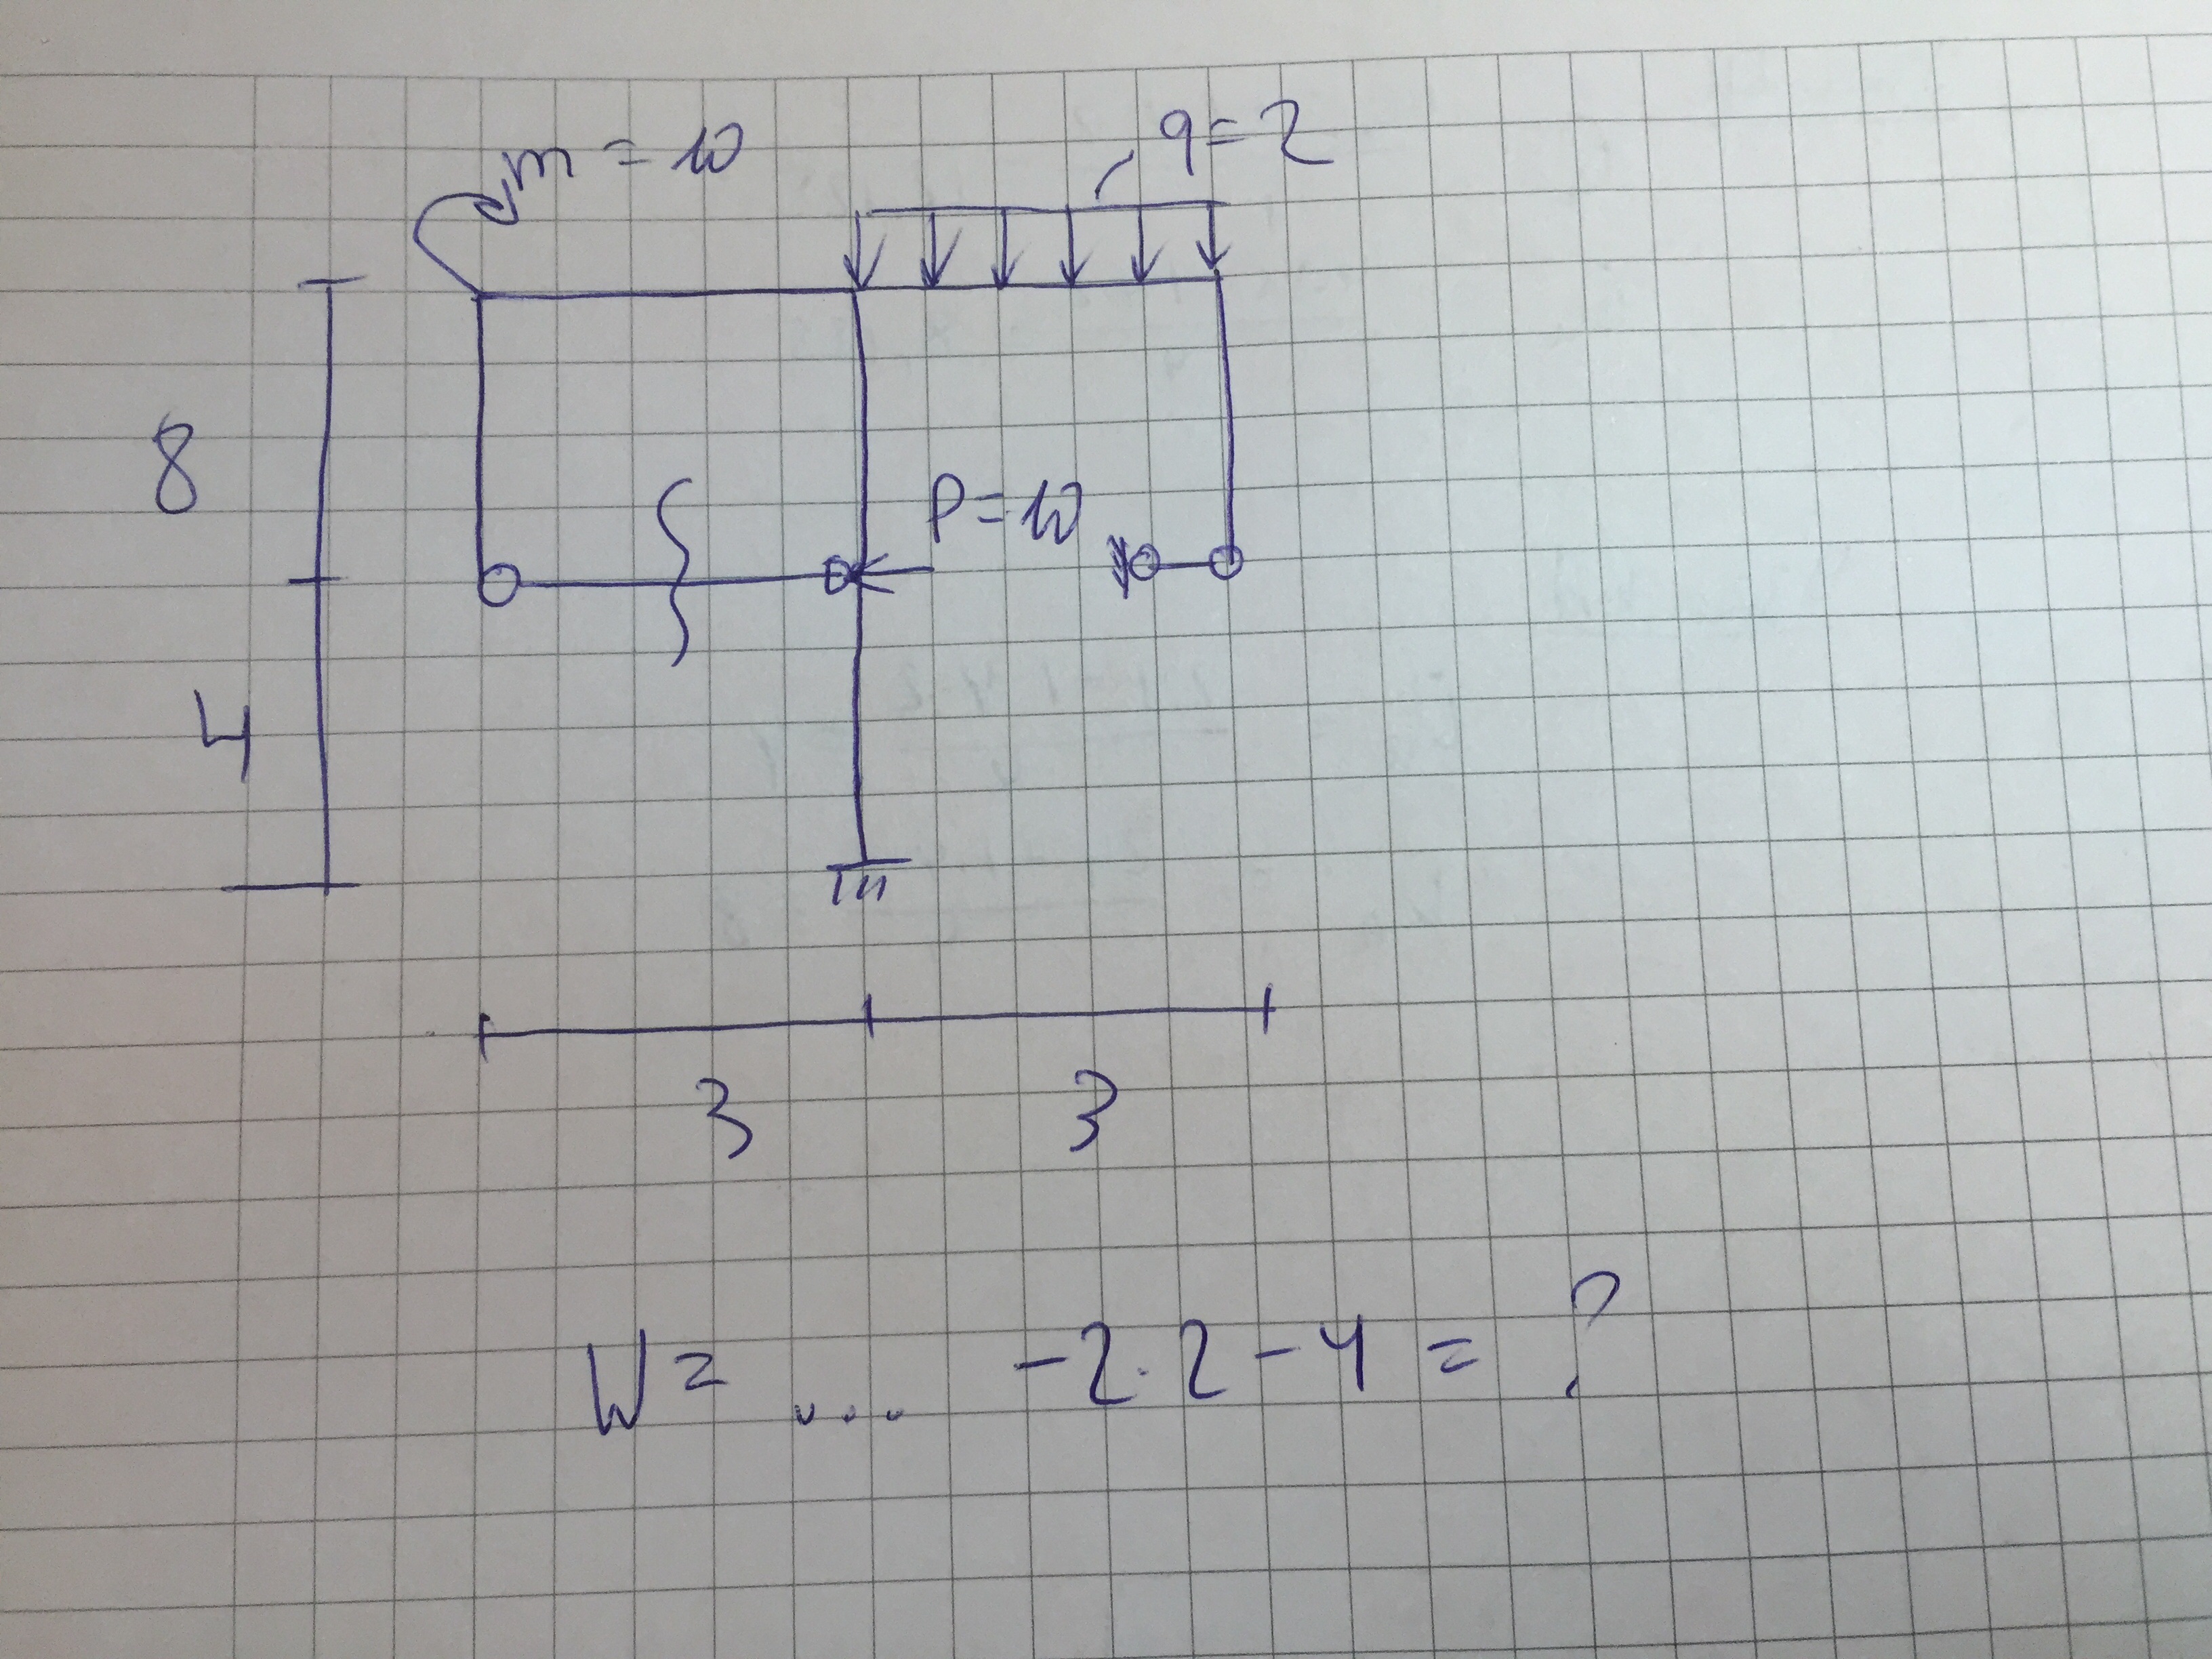 m = 10
q = 2
8
P = 10
4
3 3
W = ... - 2 · 2 - 4 = ?